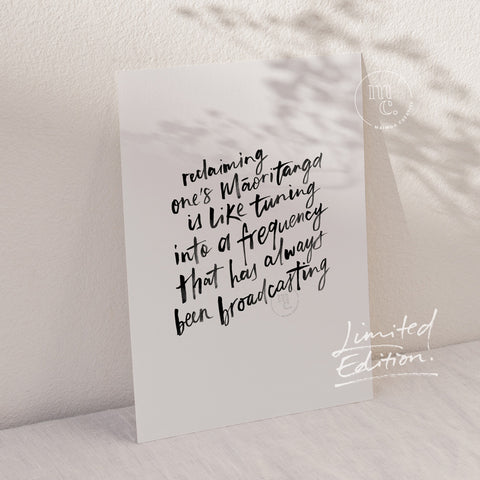 reclaiming
one's Māoritanga
is like tuning
into a frequency
that has always
been broadcasting
Limited
Edition!